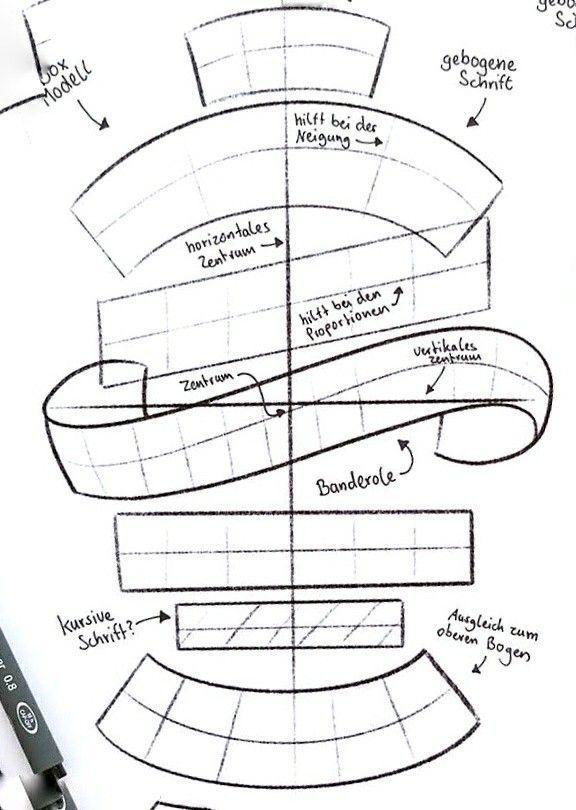 Box
Modell
gebogene
Schrift
hilft bei der
Neigung
horizontales
Zentrum
hilft bei den
Proportionen
vertikales
zentrum
Zentrum
Banderole
kursive
Schrift?
Ausgleich zum
oberen Bogen
0.8